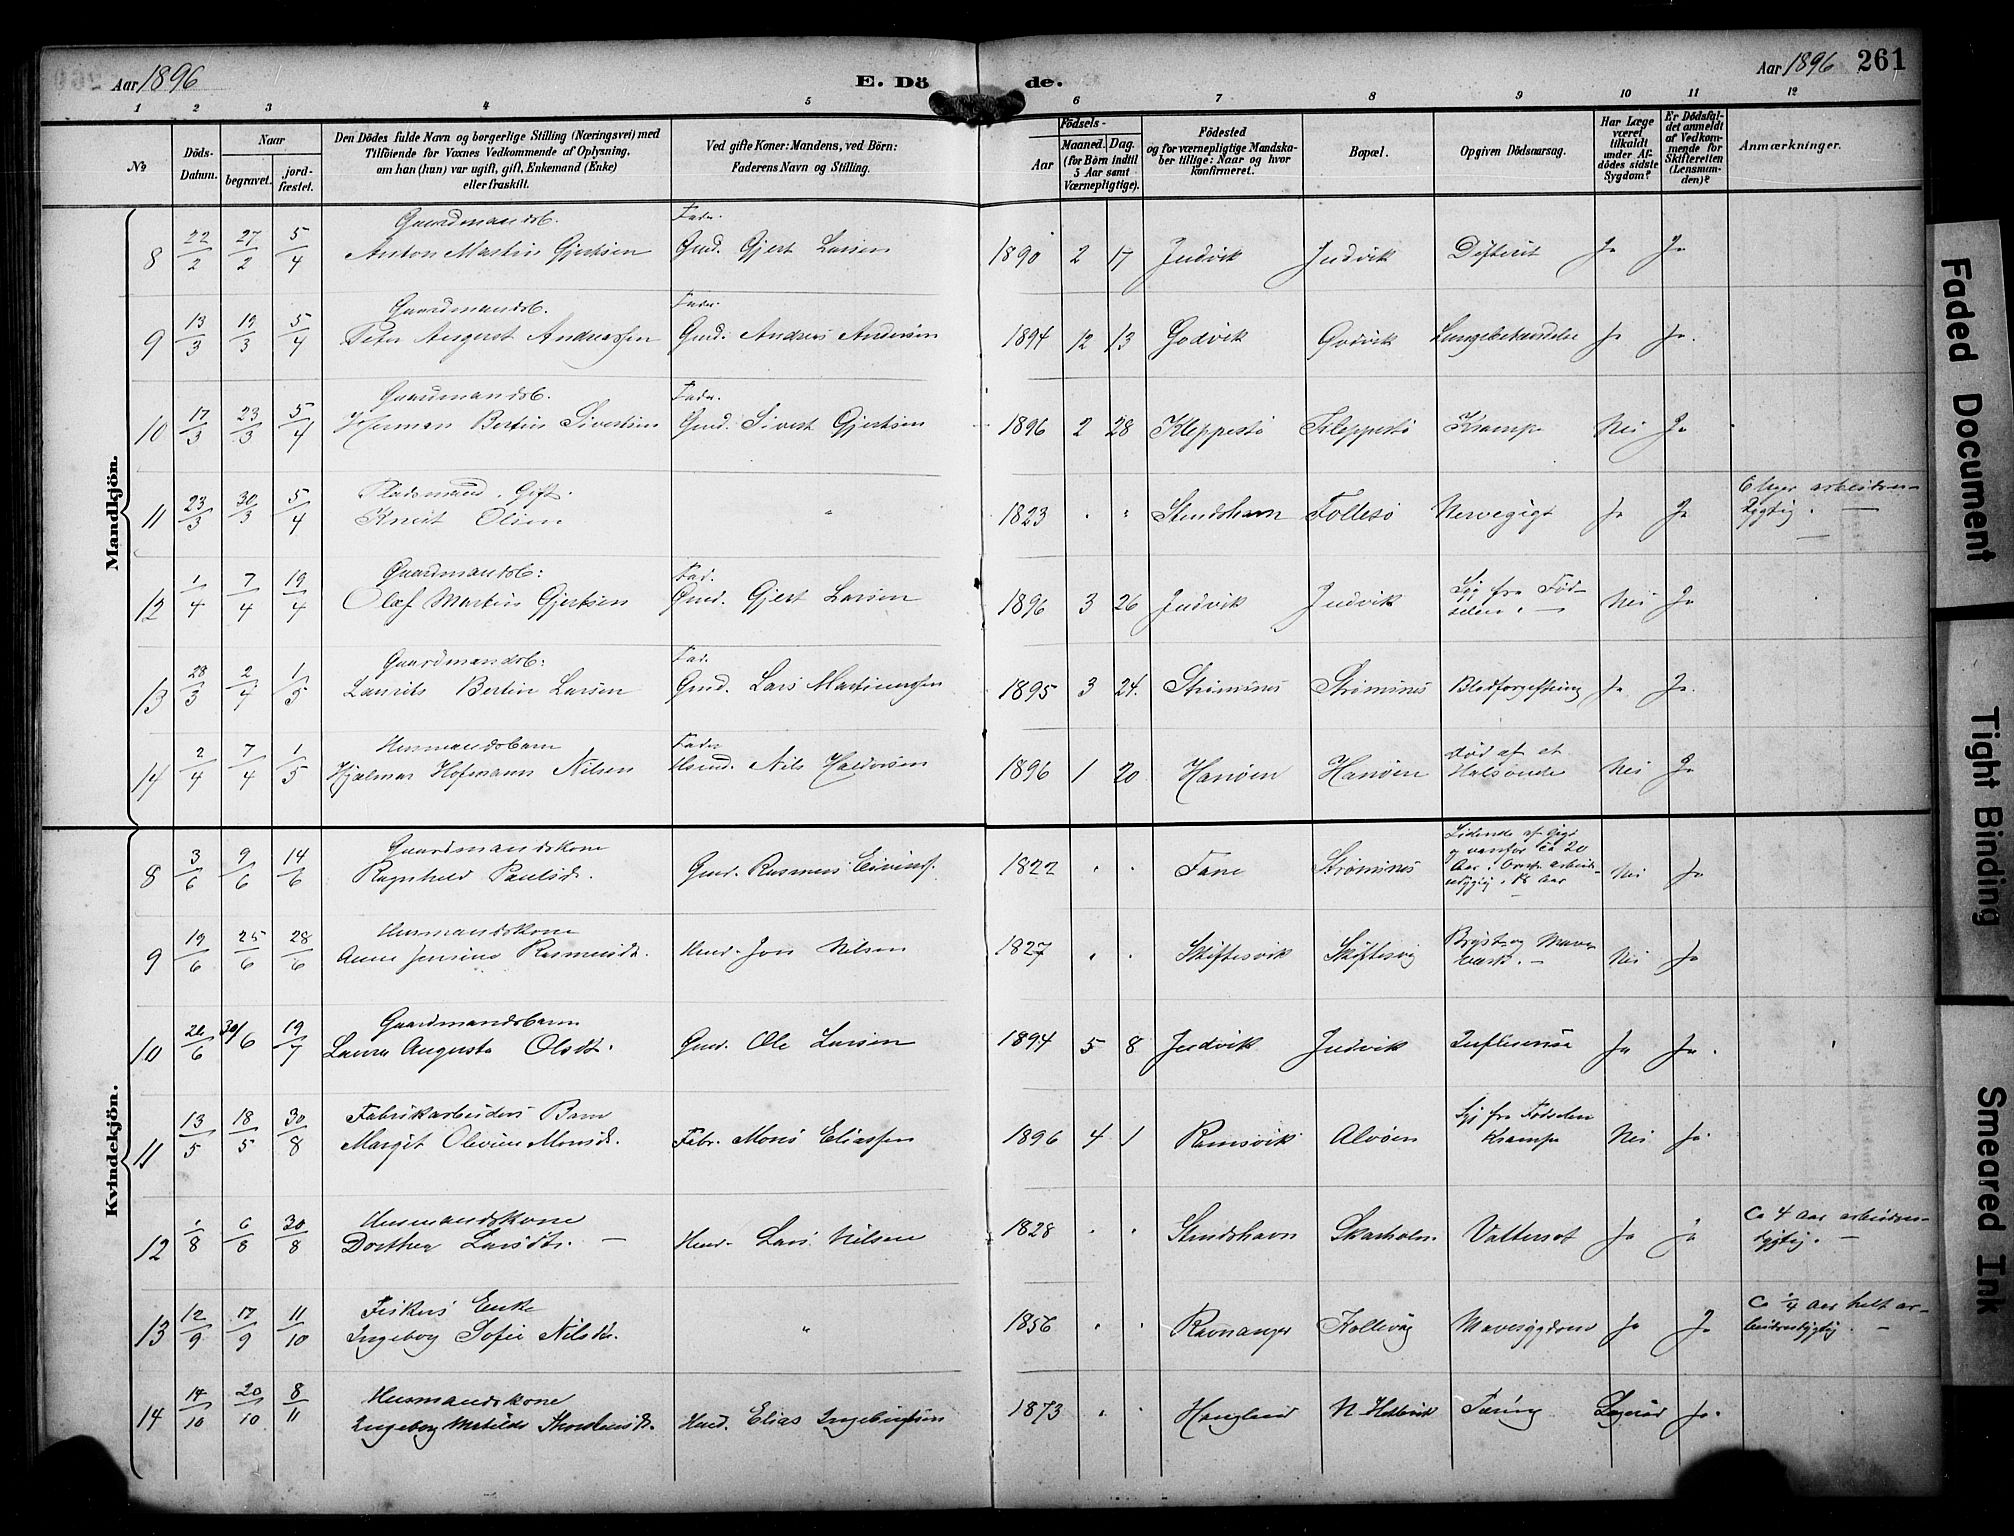 Aar 1896
E. Döde.
Aar 1896 261
1 2 3 4 5 6 7 8 9 10 11 12
№
Döds-Datum.
Naar
begravet.
jord-fæstet.
Den Dödes fulde Navn og borgerlige Stilling (Næringsvei) med
Tilföiende for Voxnes Vedkommende af Oplysning,
om han (hun) var ugift, gift, Enkemand (Enke)
eller fraskilt.
Ved gifte Koner: Mandens, ved Börn:
Faderens Navn og Stilling.
Födsels-
Aar
Maaned. Dag.
(for Börn indtil
5 Aar samt
Værnepligtige).
Födested
og for værnepligtige Mandska-
ber tillige: Naar og hvor
konfirmeret.
Bopæl.
Opgiven Dödsaarsag.
Har Læge
været
tilkaldt
under Af-
dödes sidste
Sygdom?
Er Dödsfal-
det anmeldt
af Vedkom-
mende for
Skifteretten
(Lensman-
den)?
Anmærkninger.
Mandkjön.
Gaardmandsb. Fader.
8 22/2 27/2 5/4 Anton Martin Gjertsen Gmd. Gjert Larsen 1890 2 17 Judvik Judvik Difterit Ja Ja
Gaardmandsb. Fader.
9 13/3 19/3 5/4 Peter Andreassen Gmd. Andreas Andersen 1894 12 13 Godvik Godvik Lungebetændelse Ja Ja.
Gaardmandsb. Fader.
10 17/3 23/3 5/4 Herman Bertin Sivertsen Gmd. Sivert Gjertsen 1896 2 28 Kleppestö Kleppestö Krampe Nei Ja
Pladsmand. Gift.
11 23/3 30/3 5/4 Knut Olsen " 1823 " " Stendshavn Follesö Nervegigt Ja Ja arbeidsu-
dygtig. —
Gaardmandsb: Fad.
12 1/4 7/4 19/4 Olaf Martin Gjertsen Gmd. Gjert Larsen 1896 3 26 Judvik Judvik Syg fra Föd-
selen. — Nei Ja
Gaardmandsb: Fad.
13 28/3 2/4 1/5 Laurits Bertin Larsen Gmd. Lars Martinussen 1895 3 24. Strömsnes Strömsnes Blodforgiftning Ja Ja.
Husmandsbarn Fader
14 2/4 7/4 1/5 Hjalmar Hofmann Nilsen Hsmd. Nils Haldorsen 1896 1 20 Hanöen Hanöen Död af et
Halsonde Nei Ja
Kvindekjön.
Gaardmandskone
8 3/6 9/6 14/6 Ragnhild Paulsd. Gmd. Rasmus 1822 " " Fane Strömsnes Lidende af Gigt
og vanför ca 20
Aar. arbeids-
udygtig. Aar Nei Ja
Husmandskone
9 19/6 25/6 28/6 Anne Jensine Rasmusdt. Hmd. Jon Nilsen 1827 " " Skiftesvik Skiftesvig Bryst og Mave-
værk. — Nei Ja
Gaardmandsbarn
10 26/6 30/6 19/7 Laura Augusta Olsdt. Gmd. Ole Larsen 1894 5 8 Judvik Judvik Ja Ja.
Fabrikarbeiders Barn
11 13/5 18/5 30/8 Margit Oline Monsdt. Fabr. Mons Eliassen 1896 4 1 Ramsvik Alvöen Syg fra Födselen
Krampe Nei Ja
Husmandskone
12 1/8 6/8 30/8 Dorthea Larsdtr. — Hmd. Lars Nilsen 1828 " " Stendshavn Skarholm. Vattersot Ja Ja Ca 4 Aar arbeidsu-
dygtig. —
Fiskers Enke
13 12/9 17/9 11/10 Ingeborg Sofie Nilsdt. " 1856 " " Ravnanger Follevig Mavesygdom Ja Ja Ca 1/4 Aar helt ar-
beidsudygtig. —
Husmandskone
14 14/10 20/10 8/11 Ingeborg Matilde Hmd. Elias Ingebrigtsen 1873 " " Haugland Tæring Ja.